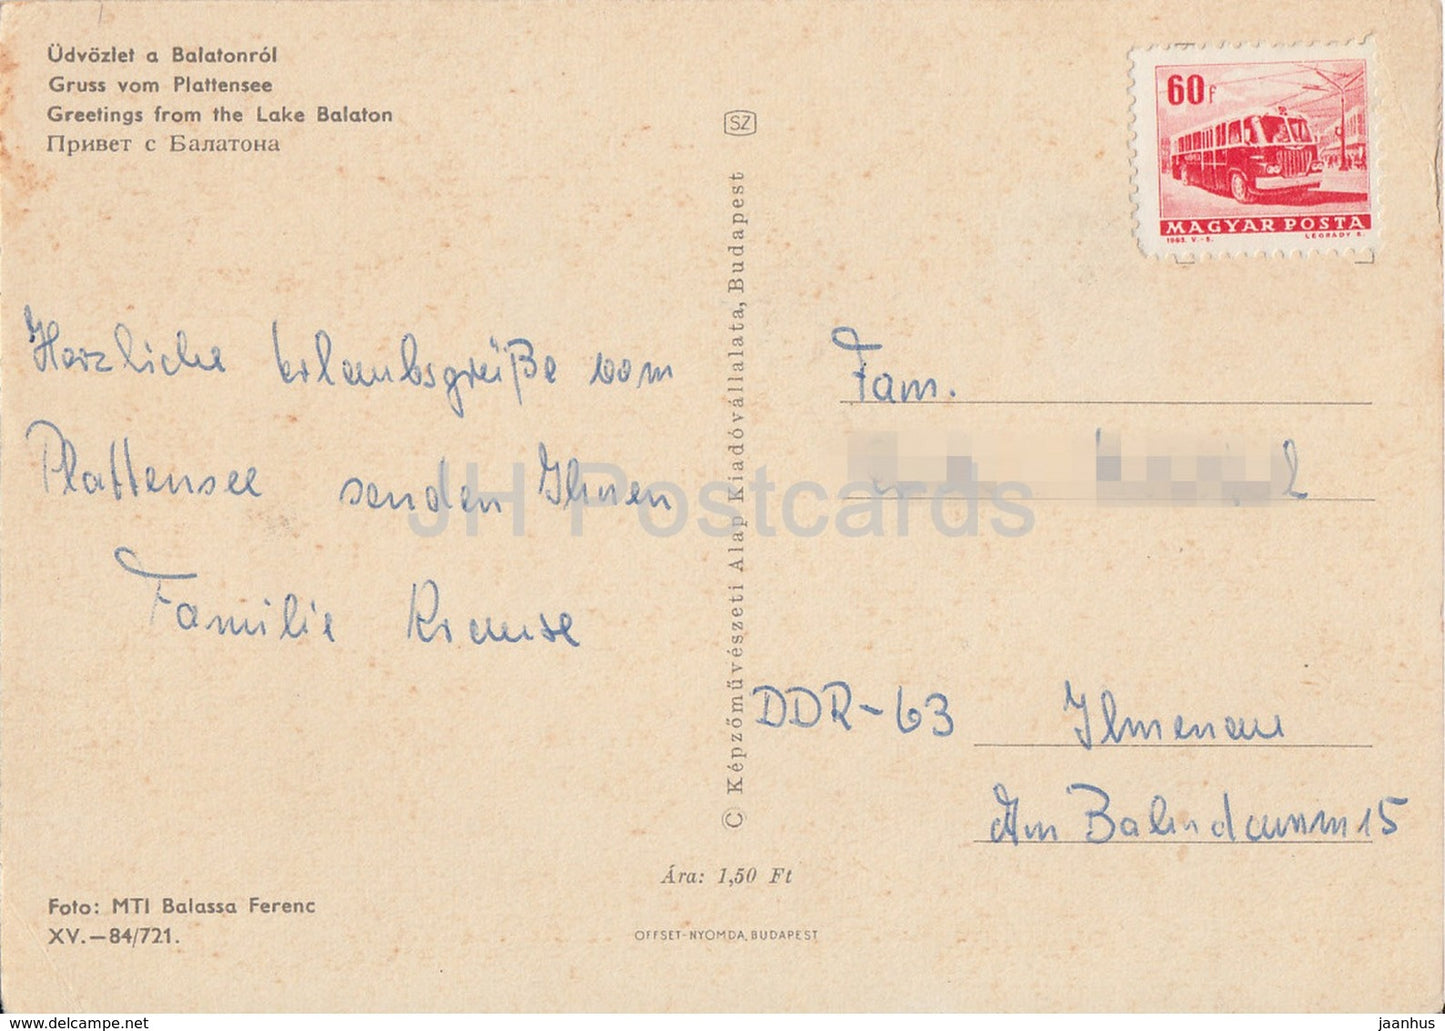 Üdvözlet a Balatonról
Gruss vom Plattensee
Greetings from the Lake Balaton
Привет с Балатона
SZ
60f
MAGYAR POSTA
1963. V.-S. LÉGRÁDY S.
Herzliche Urlaubsgrüße vom
Plattensee senden Ihnen
Familie Krause
Fam.
DDR-63 Ilmenau
Am Bahndamm 15
© Képzőművészeti Alap Kiadóvállalata, Budapest
JH Postcards
Ára: 1,50 Ft
Foto: MTI Balassa Ferenc
XV.—84/721.
OFFSET-NYOMDA, BUDAPEST
www.delcampe.net
jaanhus